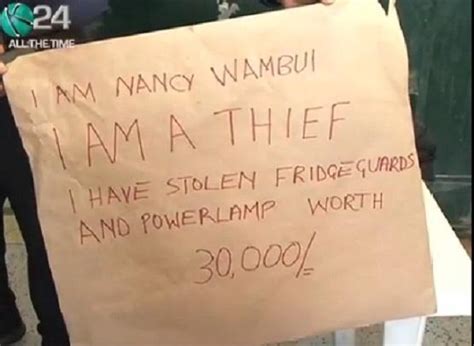 24
ALL THE TIME
I AM NANCY WAMBUI
I AM A THIEF
I HAVE STOLEN FRIDGEGUARDS
AND POWERLAMP WORTH
30,000/=